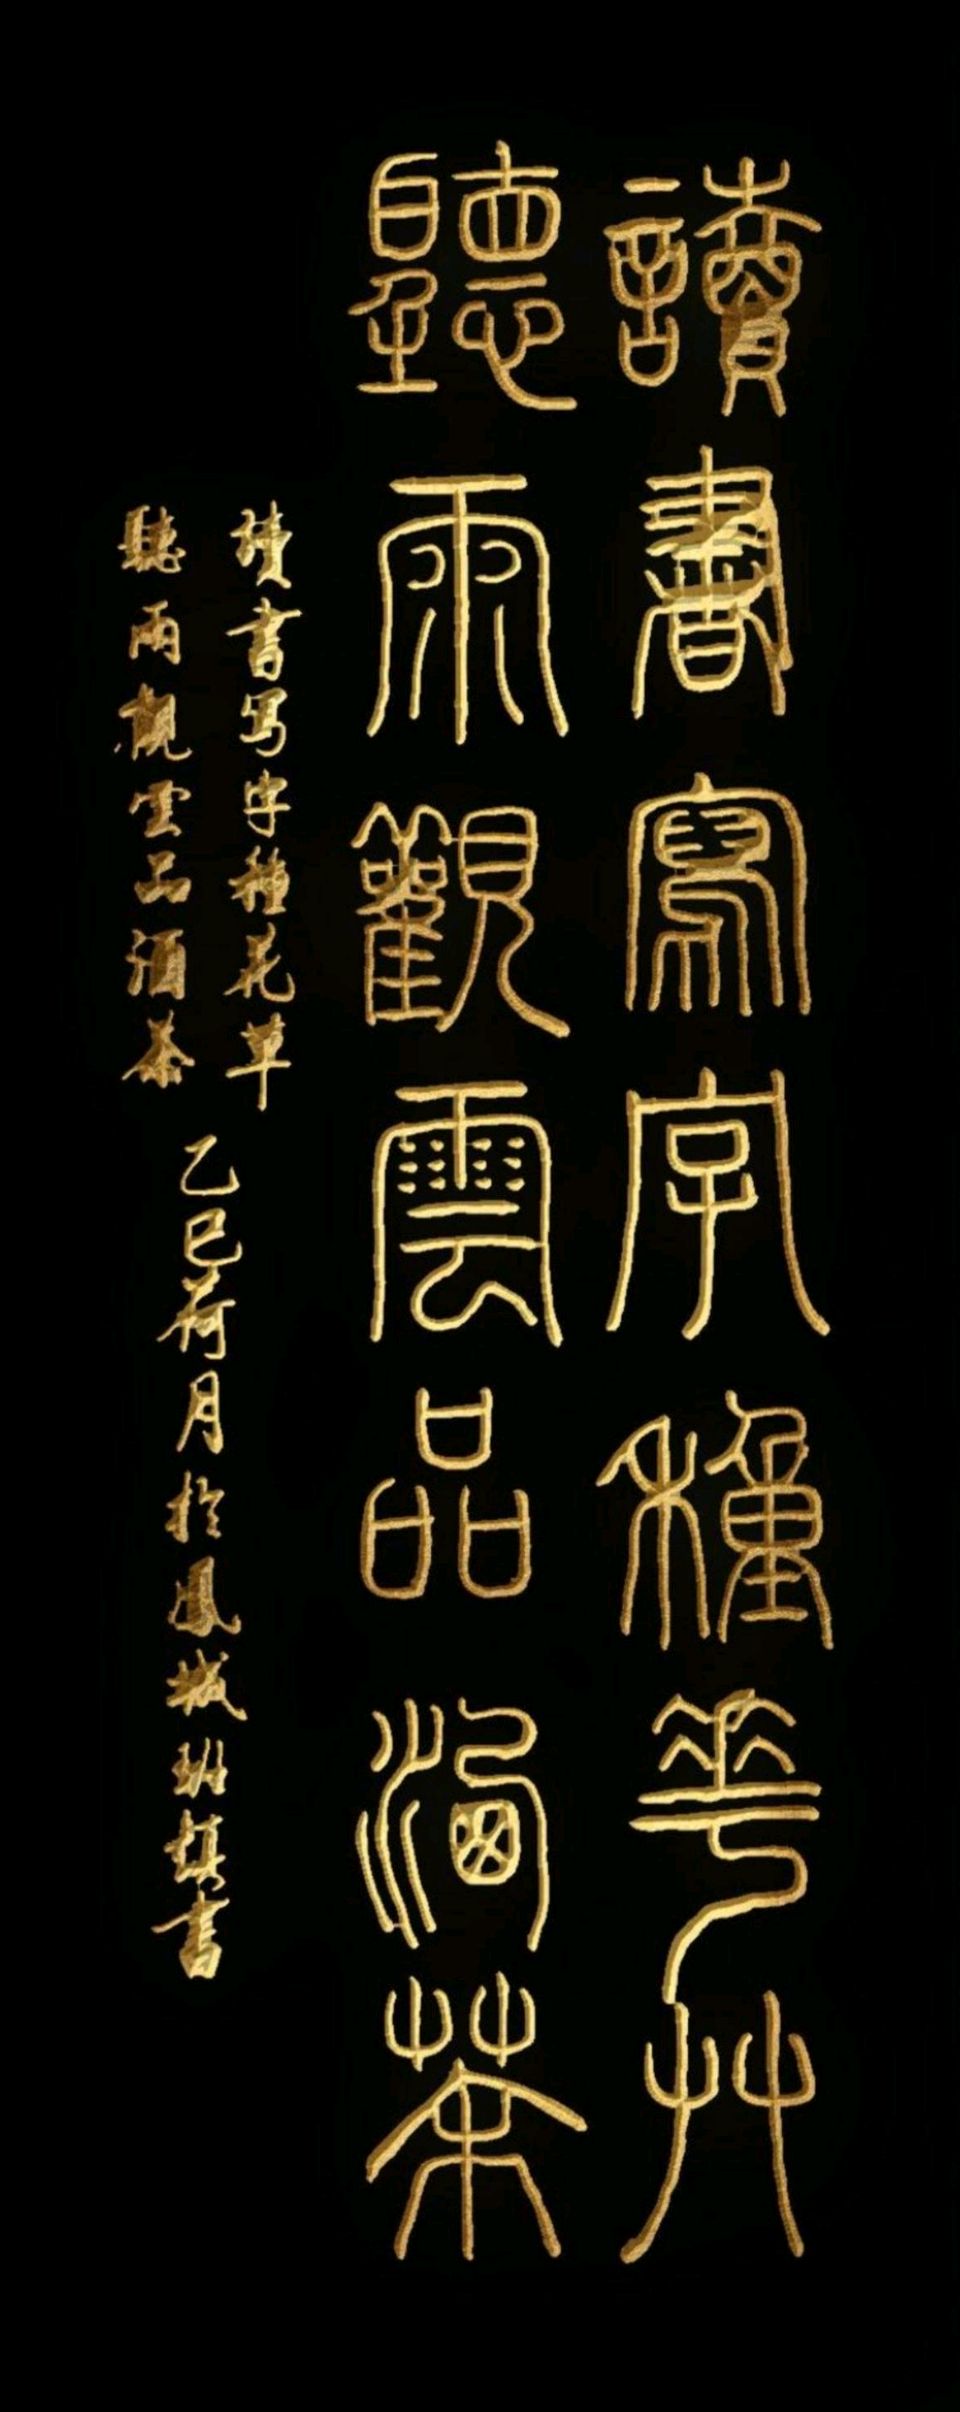 讀書寫字種花艸
聽雨觀雲品酒茶
讀書寫字種花草
聽雨觀雲品酒茶
乙巳荷月於鳳城班鎮書